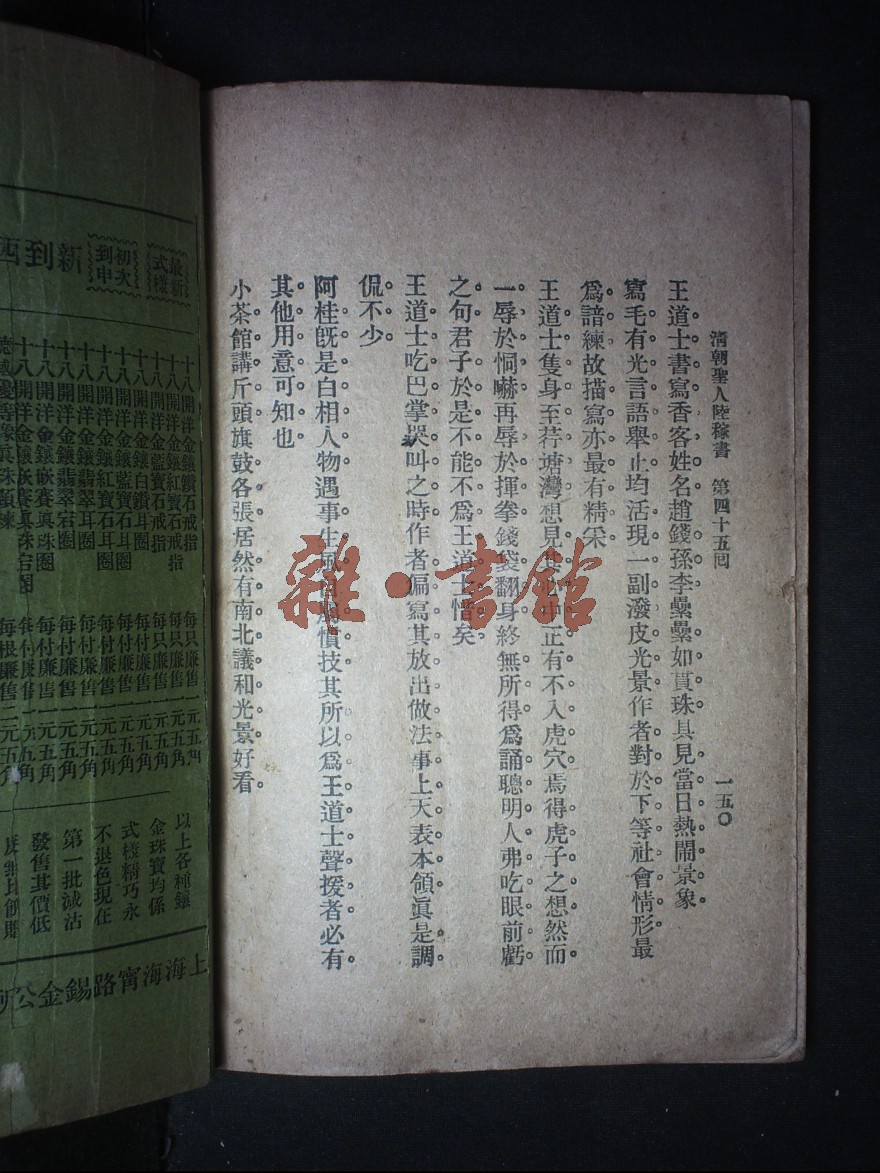 清朝聖人陸稼書 第四十五回 一五〇
王道士書寫香客姓名趙錢孫李纍纍如貫珠具見當日熱鬧景象
寫毛有光言語舉止均活現一副潑皮光景作者對於下等社會情形最
爲諳練故描寫亦最有精采
王道士隻身至荐塘灣想見其心中正有不入虎穴焉得虎子之想然而
一辱於恫嚇再辱於揮拳錢袋翻身終無所得爲誦聰明人弗吃眼前虧
之句君子於是不能不爲王道士惜矣
王道士吃巴掌哭叫之時作者偏寫其放出做法事上天表本領眞是調
侃不少
阿桂旣是白相人物遇事生風慣技其所以爲王道士聲援者必有
其他用意可知也
小茶館講斤頭旗鼓各張居然有南北議和光景好看
雜·書館
最新式樣
初次到申
新到西
十八開洋金鑲鑽石戒指 每只廉售 一元五角
十八開洋金鑲紅寶石戒指 每只廉售 一元五角
十八開洋金鑲藍寶石戒指 每只廉售 一元五角
十八開洋金鑲白鑽耳圈 每付廉售 一元五角
十八開洋金鑲紅寶石耳圈 每付廉售 一元五角
十八開洋金鑲翡翠耳圈 每付廉售 一元五角
十八開洋金鑲翡翠岩圈 每付廉售 一元五角
十八開洋金鑲嵌賽真珠圈 每付廉售 一元五角
十八開洋金鑲嵌賽真珠岩圈 每付廉售 一元五角
每根廉售 二元五角
以上各種鑲
金珠寶均係
式樣精巧永
不退色現在
第一批減沽
發售其價低
上海海甯路錫金公所